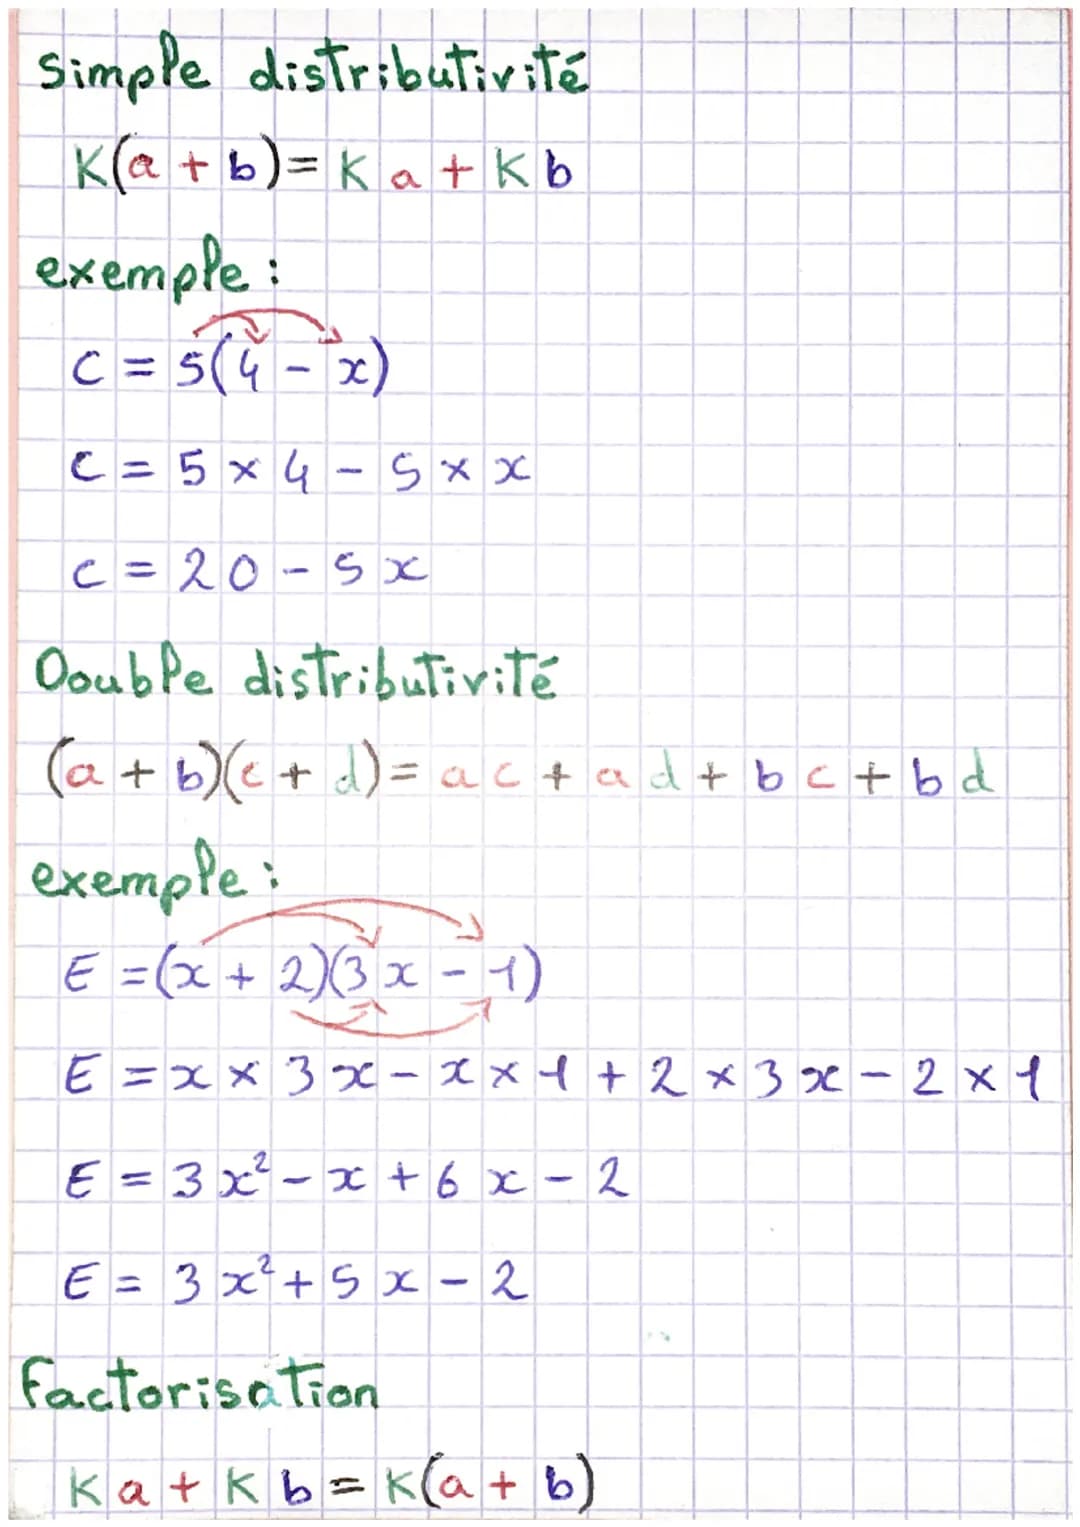 Simple distributivité
K(a + b) = K a + K b
exemple :
C = 5(4 - x)
C = 5 × 4 - 5 × x
C = 20 - 5x
Double distributivité
(a + b)(c + d) = a c + a d + b c + b d
exemple :
E = (x + 2)(3x - 1)
E = x × 3x - x × 1 + 2 × 3x - 2 × 1
E = 3x² - x + 6x - 2
E = 3x² + 5x - 2
factorisation
K a + K b = K(a + b)